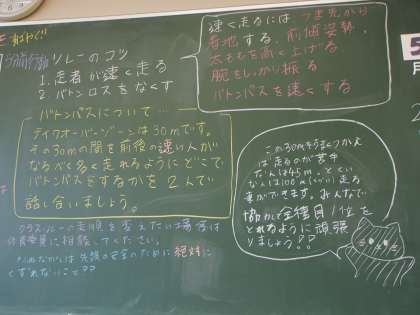 リレーのコツ
1. 走者が速く走る
2. バトンロスをなくす
速く走るには、つま先から
着地する、前傾姿勢、
太ももを高く上げる
腕をしっかり振る
バトンパスを速くする
バトンパスについて…
テイクオーバーゾーンは30mです。
その30mの間を前後の速い人が
なるべく多く走れるようにどこで
バトンパスをするかを2人で
話し合いましょう。
この30mをうまくつかえ
ば走るのが苦手
な人は45m、とくい
な人は100m
走る
事ができます。みんなで
協力して全種目1位を
とれるように頑張
りましょう??
クラスリレーの走順を変えたい場合は
体育委員に相談してください。
絶対に